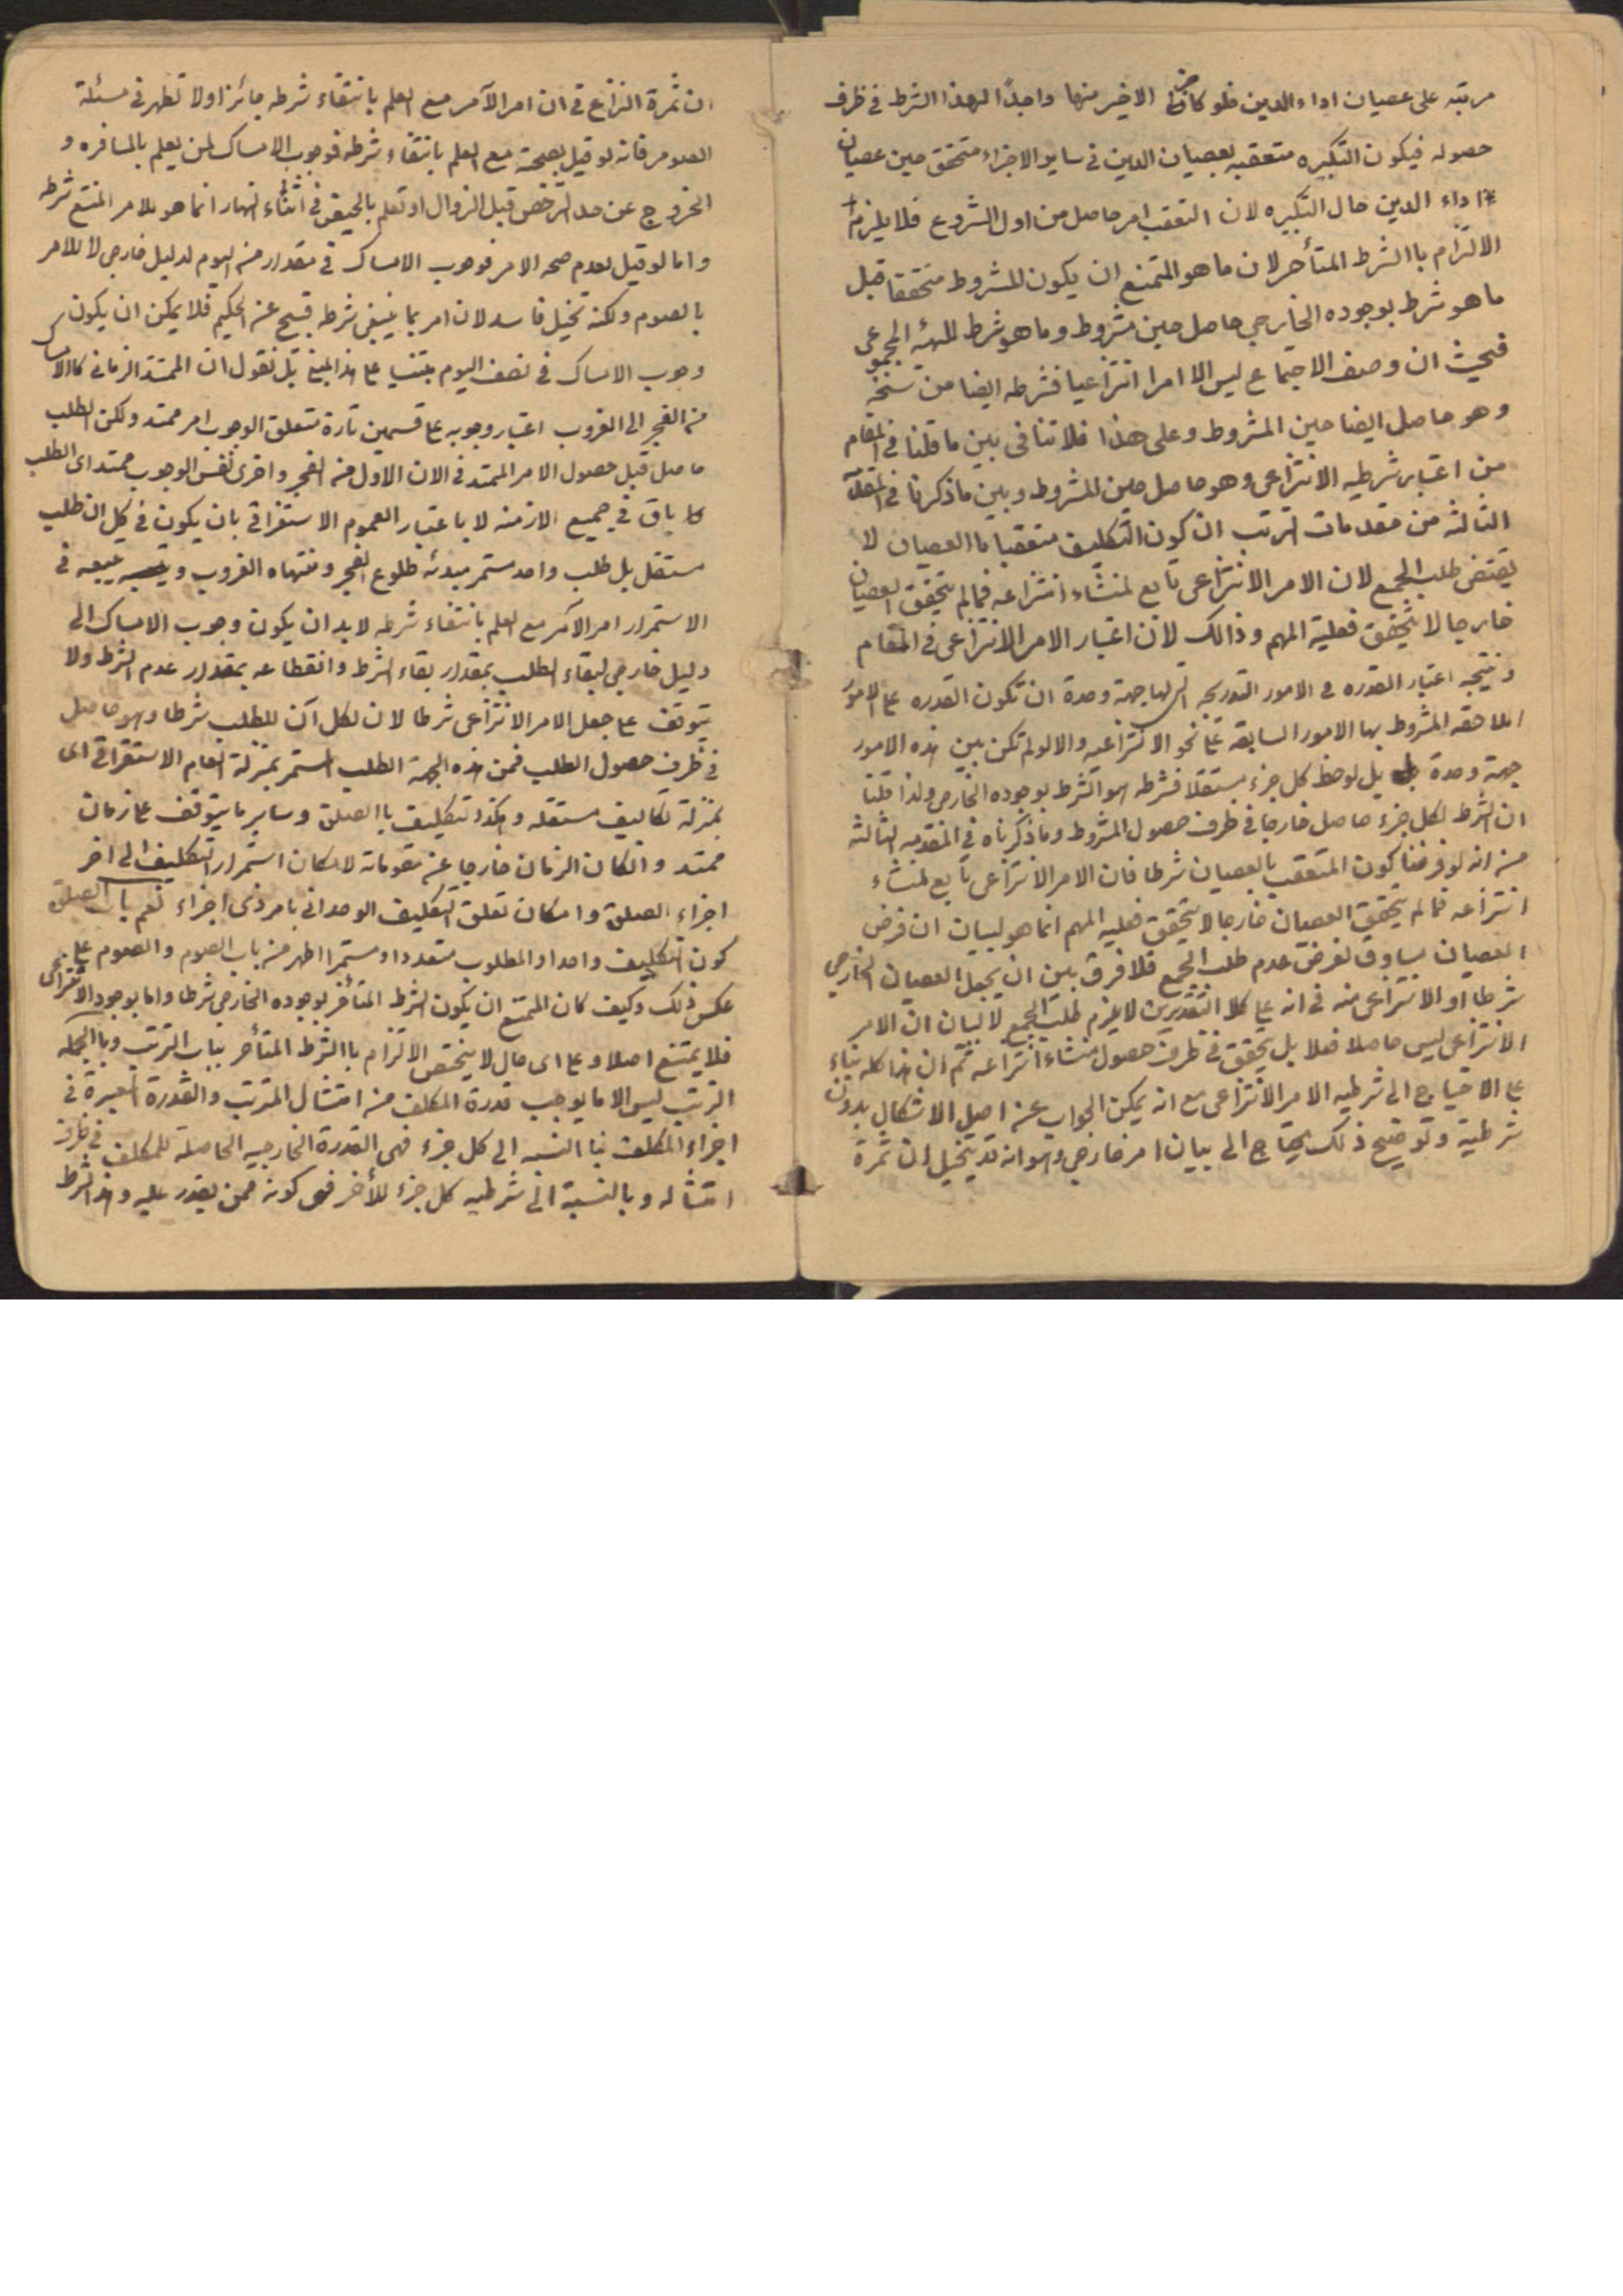 مرتبه على عصيان اداء الدين فلو كان الاخير منها واجداً لهذا الشرط فى ظرف
حصوله فيكون التكبيره متعقبه بعصيان الدين فى ساير الاجزاء متحقق حين عصيان
اداء الدين حال التكبيره لان التعقب امر حاصل من اول الشروع فلا يلزم
الالتزام باالشرط المتأخر لان ما هو الممتنع ان يكون للمشروط متحققا قبل
ما هو شرط بوجوده الخارجى حاصل حين مشروط وما هو شرط للهيئه المجموعى
فحيث ان وصف الاجتماع ليس الا امرا انتزاعيا فشرطه ايضا من سنخه
وهو حاصل ايضا حين المشروط وعلى هذا فلا تنافى بين ما قلنا فى المقام
من اعتبار شرطيه الانتزاعى وهو حاصل حين المشروط وبين ما ذكرنا فى المقدمة
الثالثه من مقدمات الترتب ان كون التكليف متعقبا باالعصيان لا
يقتضى طلب الجمع لان الامر الانتزاعى تابع لمنشاء انتزاعه فمالم يتحقق العصيان
خارجا لا يتحقق فعلية المهم وذالك لان اعتبار الامر الانتزاعى فى المقام
ونتيجه اعتبار القدره فى الامور التدريجيه التى لها جهة وحدة ان تكون القدره على الامور
اللاحقه المشروط بها الامور السابقه على نحو الانتزاعيه والا لو لم تكن بين هذه الامور
جهة وحدة بل لوحظ كل جزء مستقلا فشرطه هو الشرط بوجوده الخارجى ولذا قلنا
ان الشرط لكل جزء حاصل خارجا فى ظرف حصول المشروط وما ذكرناه فى المقدمه الثالثه
من انه لو فرضنا كون المتعقب بالعصيان شرطا فان الامر الانتزاعى تابع لمنشاء
انتزاعه فمالم يتحقق العصيان خارجا لا يتحقق فعليه المهم انما هو لبيان ان فرض
العصيان مساوق لفرض عدم طلب الجمع فلا فرق بين ان يجعل العصيان الخارجى
شرطا او الانتزاعى منه فى انه على كلا التقديرين لا يلزم طلب الجمع لا لبيان ان الامر
الانتزاعى ليس حاصلا فعلا بل يتحقق فى ظرف حصول منشاء انتزاعه ثم ان هذا كله بناء
على الاحتياج الى شرطيه الامر الانتزاعى مع انه يمكن الجواب عن اصل الاشكال بدون
شرطية وتوضيح ذلك يحتاج الى بيان امر خارجى وهو انه قد يتخيل ان ثمرة
ان ثمرة النزاع فى ان امر الآمر مع العلم بانتفاء شرطه جائز اولا تظهر فى مسئلة
الصوم فانه لو قيل بصحة مع العلم بانتفاء شرطه فوجوب الامساك لمن يعلم بالمسافره و
الخروج عن حد الترخص قبل الزوال او تعلم بالحيض فى اثناء النهار انما هو للامر الممتنع شرطه
واما لو قيل بعدم صحه الامر فوجوب الامساك فى مقدار من اليوم لدليل خارجى لا للامر
بالصوم ولكنه تخيل فاسد لان امر بما ينتفى شرطه قبيح عن الحكيم فلا يمكن ان يكون
وجوب الامساك فى نصف اليوم مبتنيا على هذا المبنى بل نقول ان الممتد الزمانى كاالامساك
من الفجر الى الغروب اعتبار وجوبه على قسمين تارة متعلق الوجوب امر ممتد ولكن الطلب
حاصل قبل حصول الامر الممتد فى الان الاول من الفجر واخرى نفس الوجوب ممتد اى الطلب
باق فى جميع الازمنه لا باعتبار العموم الاستغراقى بان يكون فى كل ان طلب
مستقل بل طلب واحد مستمر مبدئه طلوع الفجر ومنتهاه الغروب فى
الاستمرار امر الآمر مع العلم بانتفاء شرطه لابد ان يكون وجوب الامساك الى
دليل خارجى لبقاء الطلب بمقدار بقاء الشرط وانقطاعه بمقدار عدم الشرط ولا
يتوقف على جعل الامر الانتزاعى شرطا لان لكل آن للطلب شرطا وهو حاصل
فى ظرف حصول الطلب فمن هذه الجهة الطلب المستمر بمنزلة العام الاستغراقى اى
بمنزلة تكاليف مستقله وهكذا تكليف باالصلوة وساير ما يتوقف على زمان
ممتد وانكان الزمان خارجا عن مقوماته لامكان استمرار التكليف الى اخر
اجزاء الصلوة وامكان تعلق التكليف الوحدانى بامر ذى اجزاء نعم باب الصلوة
كون التكليف واحدا والمطلوب متعددا ومستمرا اظهر من باب الصوم والصوم على
عكس ذلك وكيف كان الممتنع ان يكون الشرط المتأخر بوجوده الخارجى شرطا واما بوجود الانتزاعى
فلا يمتنع اصلا وعلى اى حال لا يختص الالتزام باالشرط المتأخر بباب الترتب وباالجمله
الترتب ليس الا ما يوجب قدرة المكلف من امتثال المترتب والقدرة المعتبرة فى
اجزاء المكلف باالنسبه الى كل جزء فهى القدرة الخارجيه الحاصلة للمكلف فى ظرف
امتثاله وبالنسبة الى شرطيه كل جزء للأخر فهى كونه ممن يقدر عليه وهذا الشرط